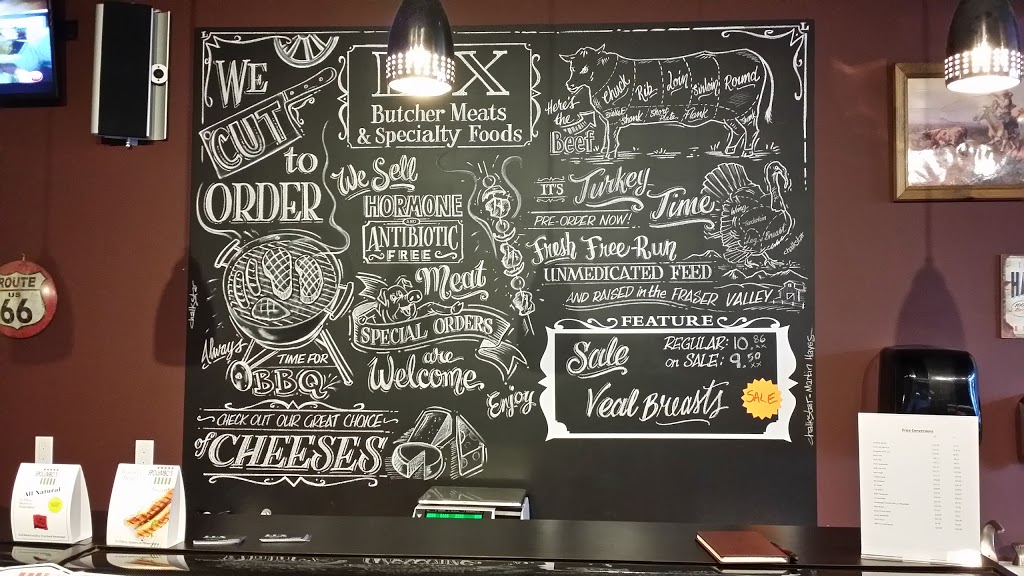 WE
CUT
to
ORDER
X
Butcher Meats
& Specialty Foods
We Sell
HORMONE
ANTIBIOTIC
FREE
Meat
SPECIAL ORDERS
are
Welcome
Enjoy
Always
TIME FOR
BBQ
CHECK OUT OUR GREAT CHOICE
of CHEESES
Here's
the
Beef
Chuck
Rib
Loin
Sirloin
Round
Shank
Flank
IT'S Turkey
Time
PRE-ORDER NOW!
Fresh Free-Run
UNMEDICATED FEED
AND RAISED in the FRASER VALLEY
FEATURE
Sale
REGULAR: 10.86
on SALE: 9.50
Veal Breasts
SALE
chalkstar
chalkstar - Martin Hayes
ROUTE
US
66
HA
All Natural